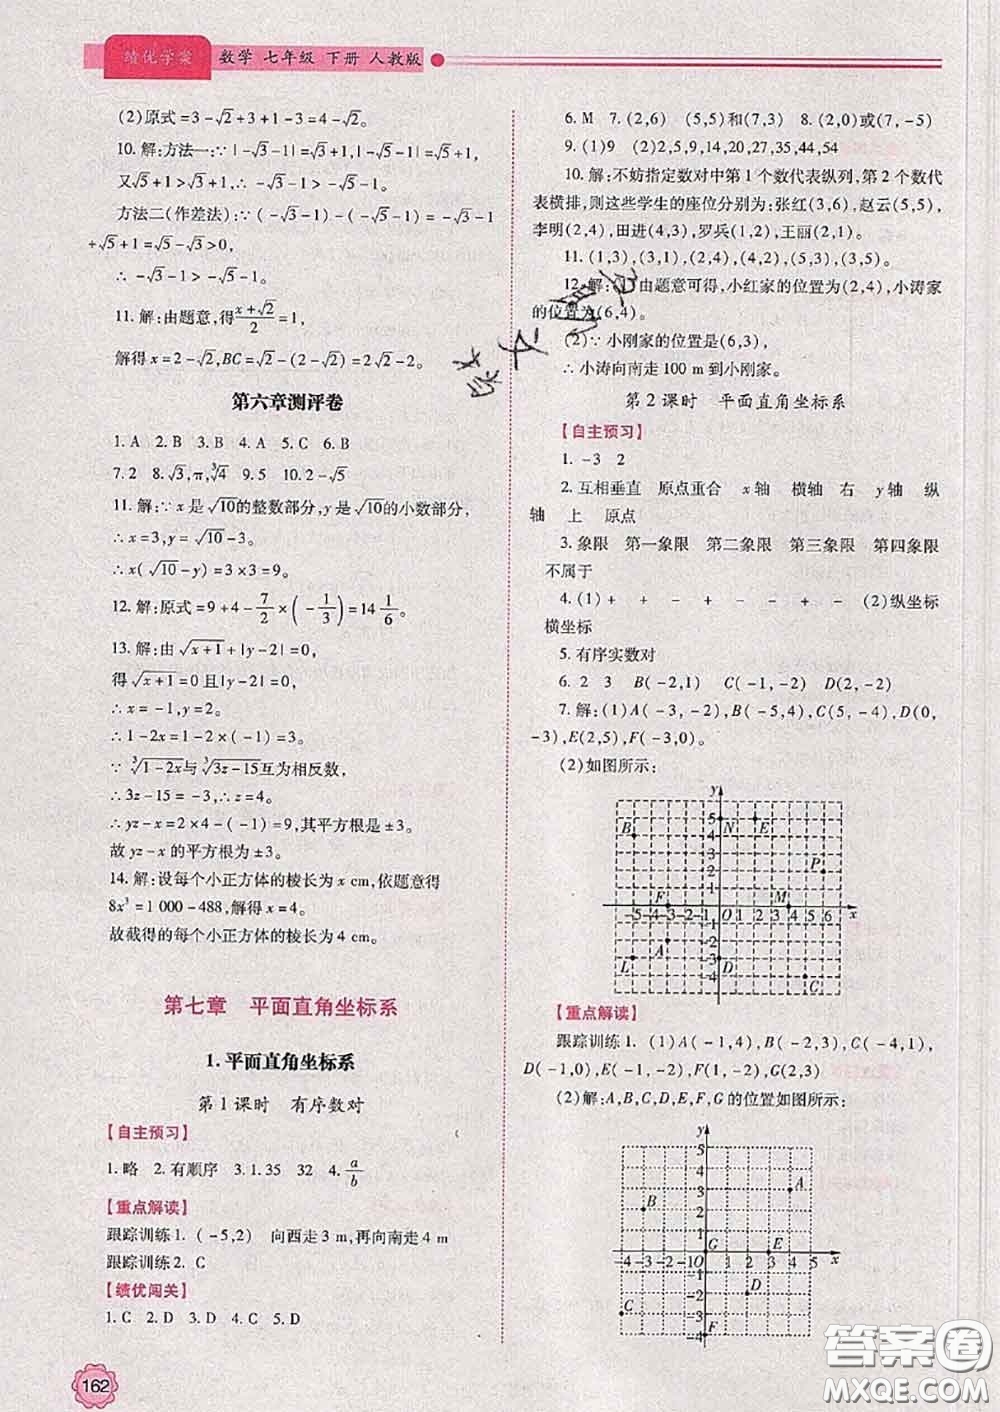 绩优学案 数学 七年级 下册 人教版
(2)原式=3-√2+3+1-3=4-√2。
10.解:方法一:∵|-√3-1|=√3+1,|-√5-1|=√5+1,
又√5+1>√3+1,∴-√3-1>-√5-1。
方法二(作差法):∵(-√3-1)-(-√5-1)=-√3-1
+√5+1=√5-√3>0,
∴-√3-1>-√5-1。
11.解:由题意,得(x+√2)/2=1,
解得x=2-√2,BC=√2-(2-√2)=2√2-2。
第六章测评卷
1.A 2.B 3.B 4.A 5.C 6.B
7.2 8.√3,π,∛4 9.5 10.2-√5
11.解:∵x是√10的整数部分,y是√10的小数部分,
∴x=3,y=√10-3。
∴x(√10-y)=3×3=9。
12.解:原式=9+4-7/2×(-1/3)=14 1/6。
13.解:由√(x+1)+|y-2|=0,
得√(x+1)=0且|y-2|=0。
∴x=-1,y=2。
∴1-2x=1-2×(-1)=3。
∵∛(1-2x)与∛(3z-15)互为相反数,
∴3z-15=-3,∴z=4。
∴yz-x=2×4-(-1)=9,其平方根是±3。
故yz-x的平方根为±3。
14.解:设每个小正方体的棱长为x cm,依题意得
8x³=1 000-488,解得x=4。
故截得的每个小正方体的棱长为4 cm。
第七章 平面直角坐标系
1.平面直角坐标系
第1课时 有序数对
【自主预习】
1.略 2.有顺序 3.1.35 32 4.a/b
【重点解读】
跟踪训练1.(-5,2) 向西走3 m,再向南走4 m
跟踪训练2.C
【绩优闯关】
1.C 2.D 3.D 4.C 5.D
162
6.M 7.(2,6) (5,5)和(7,3) 8.(2,0)或(7,-5)
9.(1)9 (2)2,5,9,14,20,27,35,44,54
10.解:不妨指定数对中第1个数代表纵列,第2个数代
表横排,则这些学生的座位分别为:张红(3,6),赵云(5,5),
李明(2,4),田进(4,3),罗兵(1,2),王丽(2,1)。
11.(1,3),(3,1),(2,4),(4,2),(5,3),(3,5)。
12.解:(1)由题意可得,小红家的位置为(2,4),小涛家
的位置为(6,4)。
(2)∵小刚家的位置是(6,3),
∴小涛向南走100 m到小刚家。
第2课时 平面直角坐标系
【自主预习】
1.-3 2
2.互相垂直 原点重合 x轴 横轴 右 y轴 纵
轴 上 原点
3.象限 第一象限 第二象限 第三象限 第四象限
不属于
4.(1)+ + - + - - + - (2)纵坐标
横坐标
5.有序实数对
6.2 3 B(-2,1) C(-1,-2) D(2,-2)
7.解:(1)A(-3,-2),B(-5,4),C(5,-4),D(0,
-3),E(2,5),F(-3,0)。
(2)如图所示:
y
5 4 3 2 1
-5-4-3-2-1 O 1 2 3 4 5 6 x
-1 -2 -3 -4 -5
B N E P F M A L D C
【重点解读】
跟踪训练1.(1)A(-1,4),B(-2,3),C(-4,1),
D(-1,0),E(-1,-2),F(1,-2),G(2,3)
(2)解:A,B,C,D,E,F,G的位置如图所示:
y
5 4 3 2 1
-4 -3 -2 -1 O 1 2 3 4 5 x
-1 -2 -3 -4
A B G E D C F
答案圈
MXQE.COM